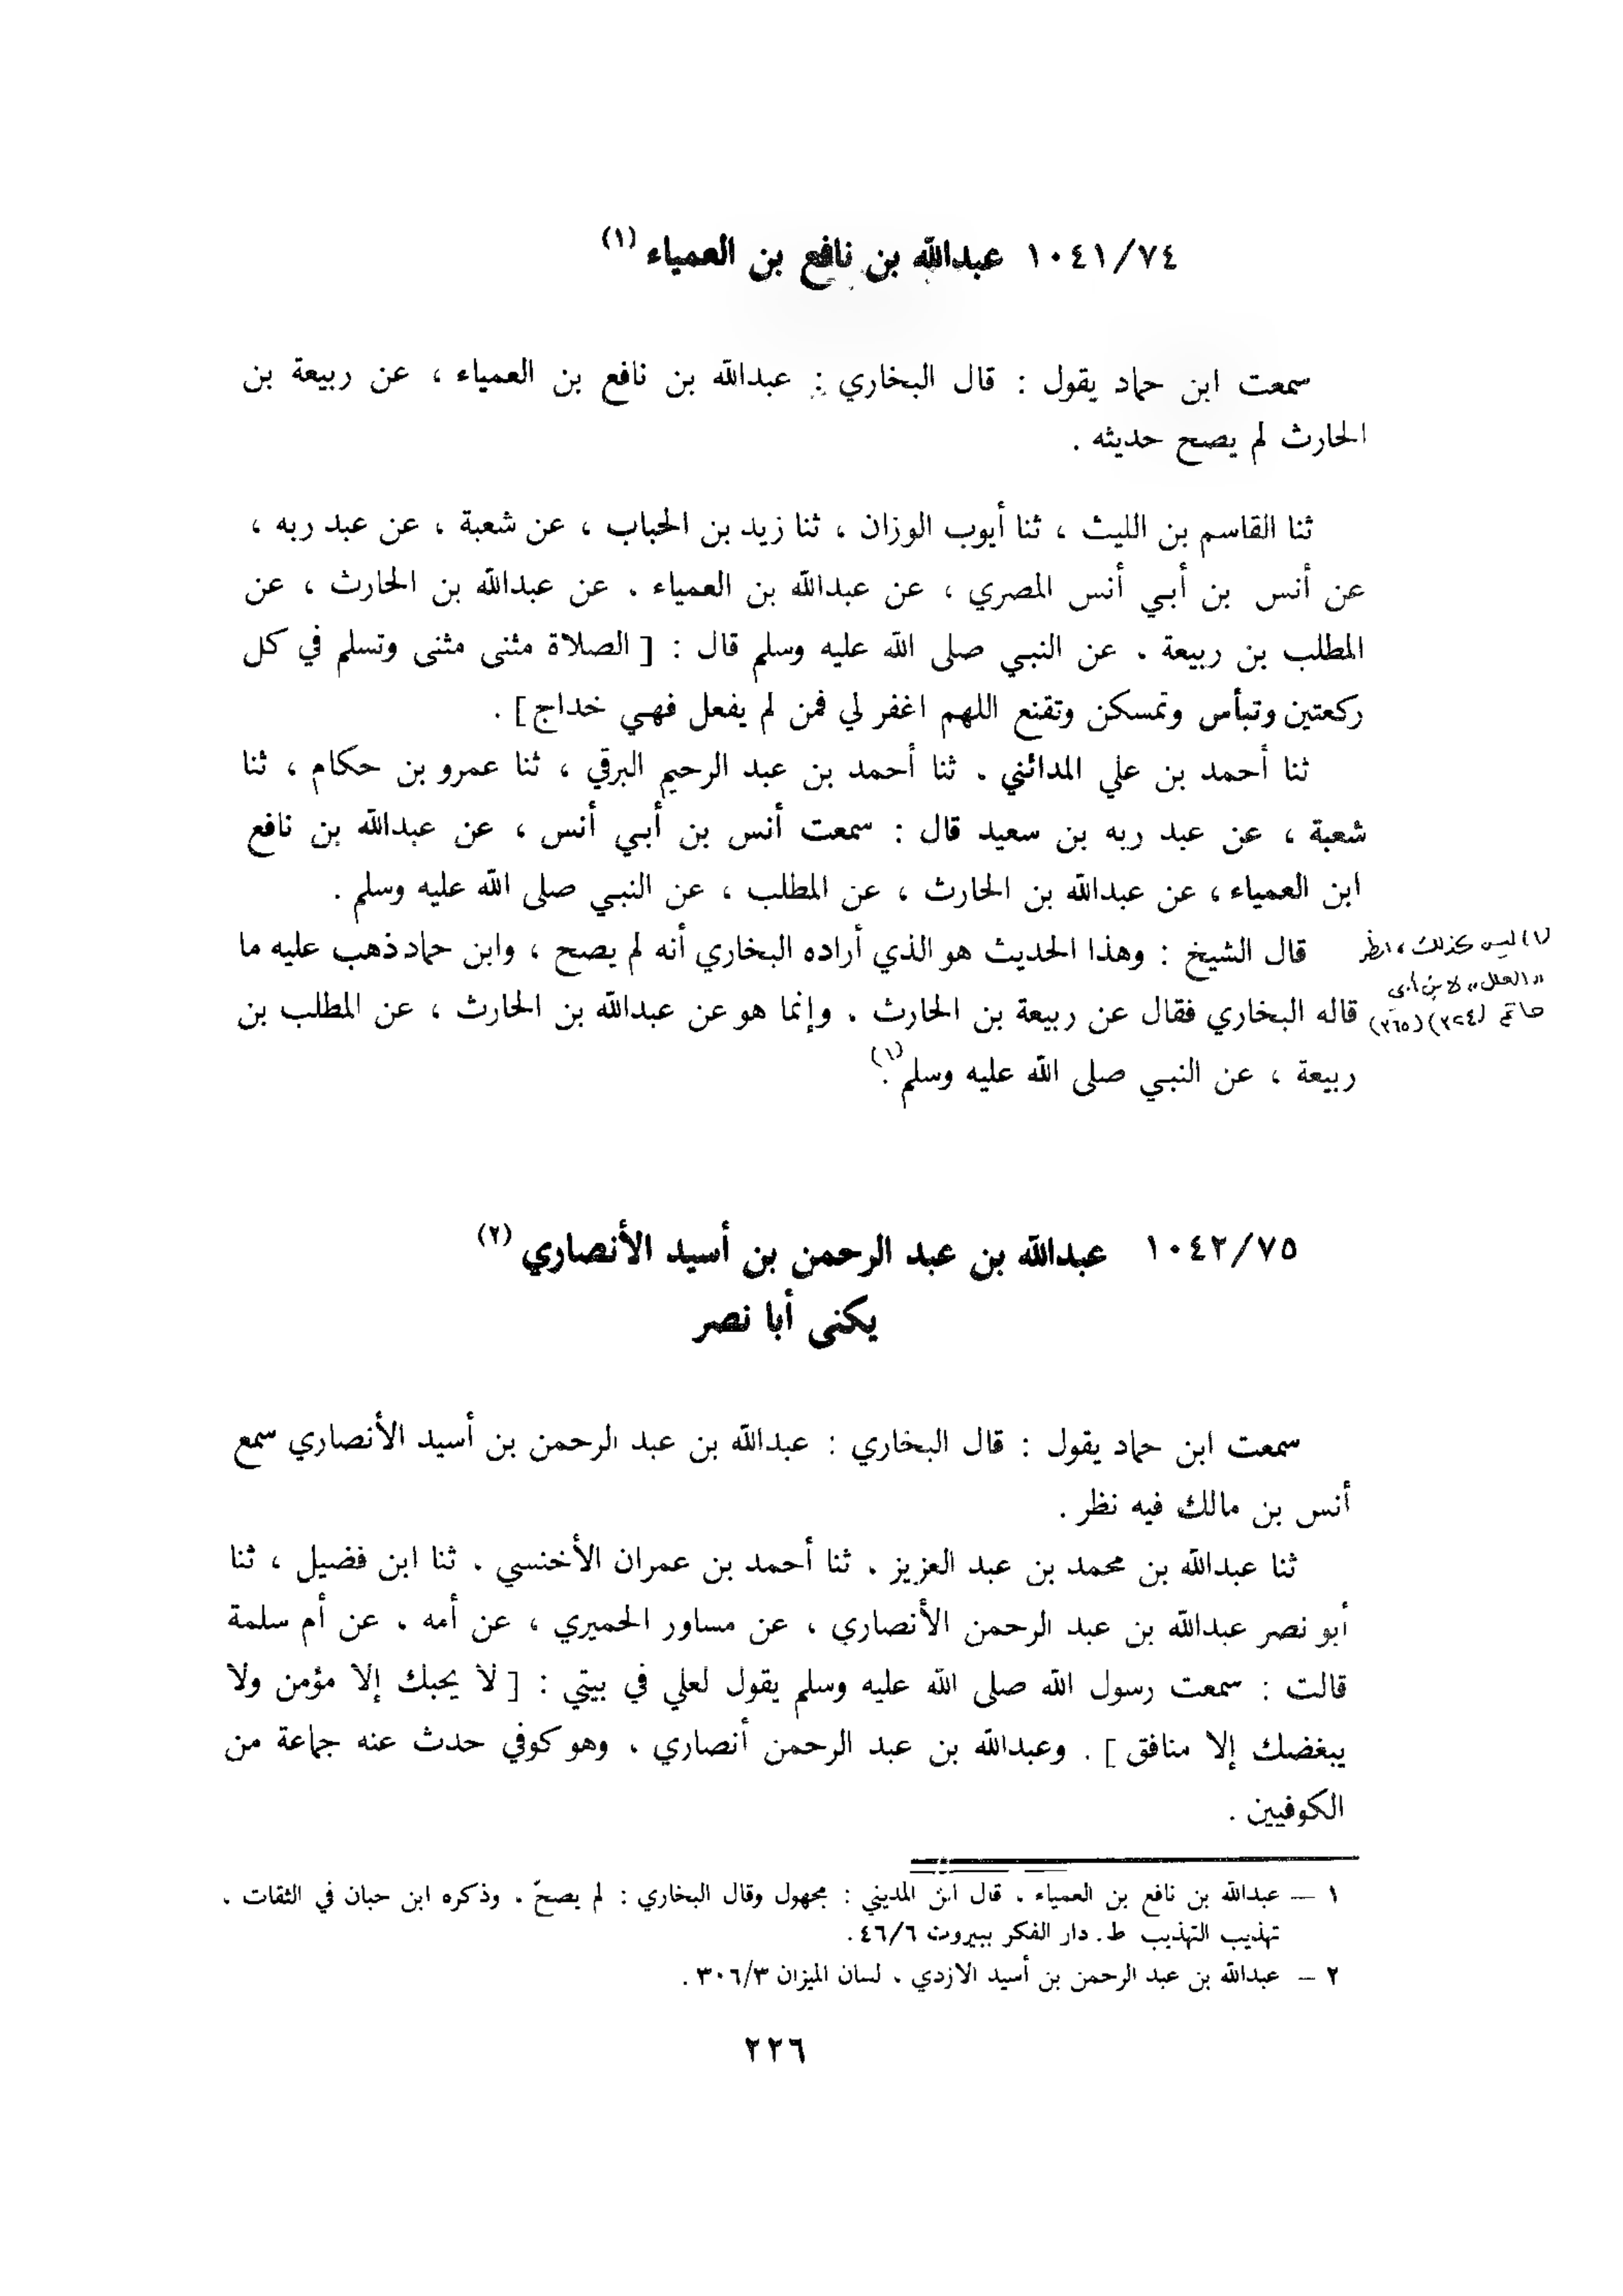 ١٠٤١/٧٤ عبدالله بن نافع بن العمياء (١)
سمعت ابن حماد يقول : قال البخاري : عبدالله بن نافع بن العمياء ، عن ربيعة بن
الحارث لم يصح حديثه .
ثنا القاسم بن الليث ، ثنا أيوب الوزان ، ثنا زيد بن الحباب ، عن شعبة ، عن عبد ربه ،
عن أنس بن أبي أنس المصري ، عن عبدالله بن العمياء . عن عبدالله بن الحارث ، عن
المطلب بن ربيعة . عن النبي صلى الله عليه وسلم قال : [ الصلاة مثنى مثنى وتسلم في كل
ركعتين وتبأس وتمسكن وتقنع اللهم اغفر لي فمن لم يفعل فهي خداج ] .
ثنا أحمد بن علي المدائني . ثنا أحمد بن عبد الرحيم البرقي ، ثنا عمرو بن حكام ، ثنا
شعبة ، عن عبد ربه بن سعيد قال : سمعت أنس بن أبي أنس ، عن عبدالله بن نافع
ابن العمياء ، عن عبدالله بن الحارث ، عن المطلب ، عن النبي صلى الله عليه وسلم .
قال الشيخ : وهذا الحديث هو الذي أراده البخاري أنه لم يصح ، وابن حماد ذهب عليه ما
قاله البخاري فقال عن ربيعة بن الحارث . وإنما هو عن عبدالله بن الحارث ، عن المطلب بن
ربيعة ، عن النبي صلى الله عليه وسلم (١) .
(١) ليس كذلك ، انظر
«العلل» لابن أبي
حاتم (٣٢٤) (٣٦٥)
١٠٤٢/٧٥ عبدالله بن عبد الرحمن بن أسيد الأنصاري (٢)
يكنى أبا نصر
سمعت ابن حماد يقول : قال البخاري : عبدالله بن عبد الرحمن بن أسيد الأنصاري سمع
أنس بن مالك فيه نظر .
ثنا عبدالله بن محمد بن عبد العزيز . ثنا أحمد بن عمران الأخنسي . ثنا ابن فضيل ، ثنا
أبو نصر عبدالله بن عبد الرحمن الأنصاري ، عن مساور الحميري ، عن أمه . عن أم سلمة
قالت : سمعت رسول الله صلى الله عليه وسلم يقول لعلي في بيتي : [ لا يحبك إلا مؤمن ولا
يبغضك إلا منافق ] . وعبدالله بن عبد الرحمن أنصاري ، وهو كوفي حدث عنه جماعة من
الكوفيين .
١ — عبدالله بن نافع بن العمياء . قال ابن المديني : مجهول وقال البخاري : لم يصحّ . وذكره ابن حبان في الثقات .
تهذيب التهذيب ط. دار الفكر ببيروت ٤٦/٦ .
٢ — عبدالله بن عبد الرحمن بن أسيد الازدي . لسان الميزان ٣٠٦/٣ .
٢٢٦